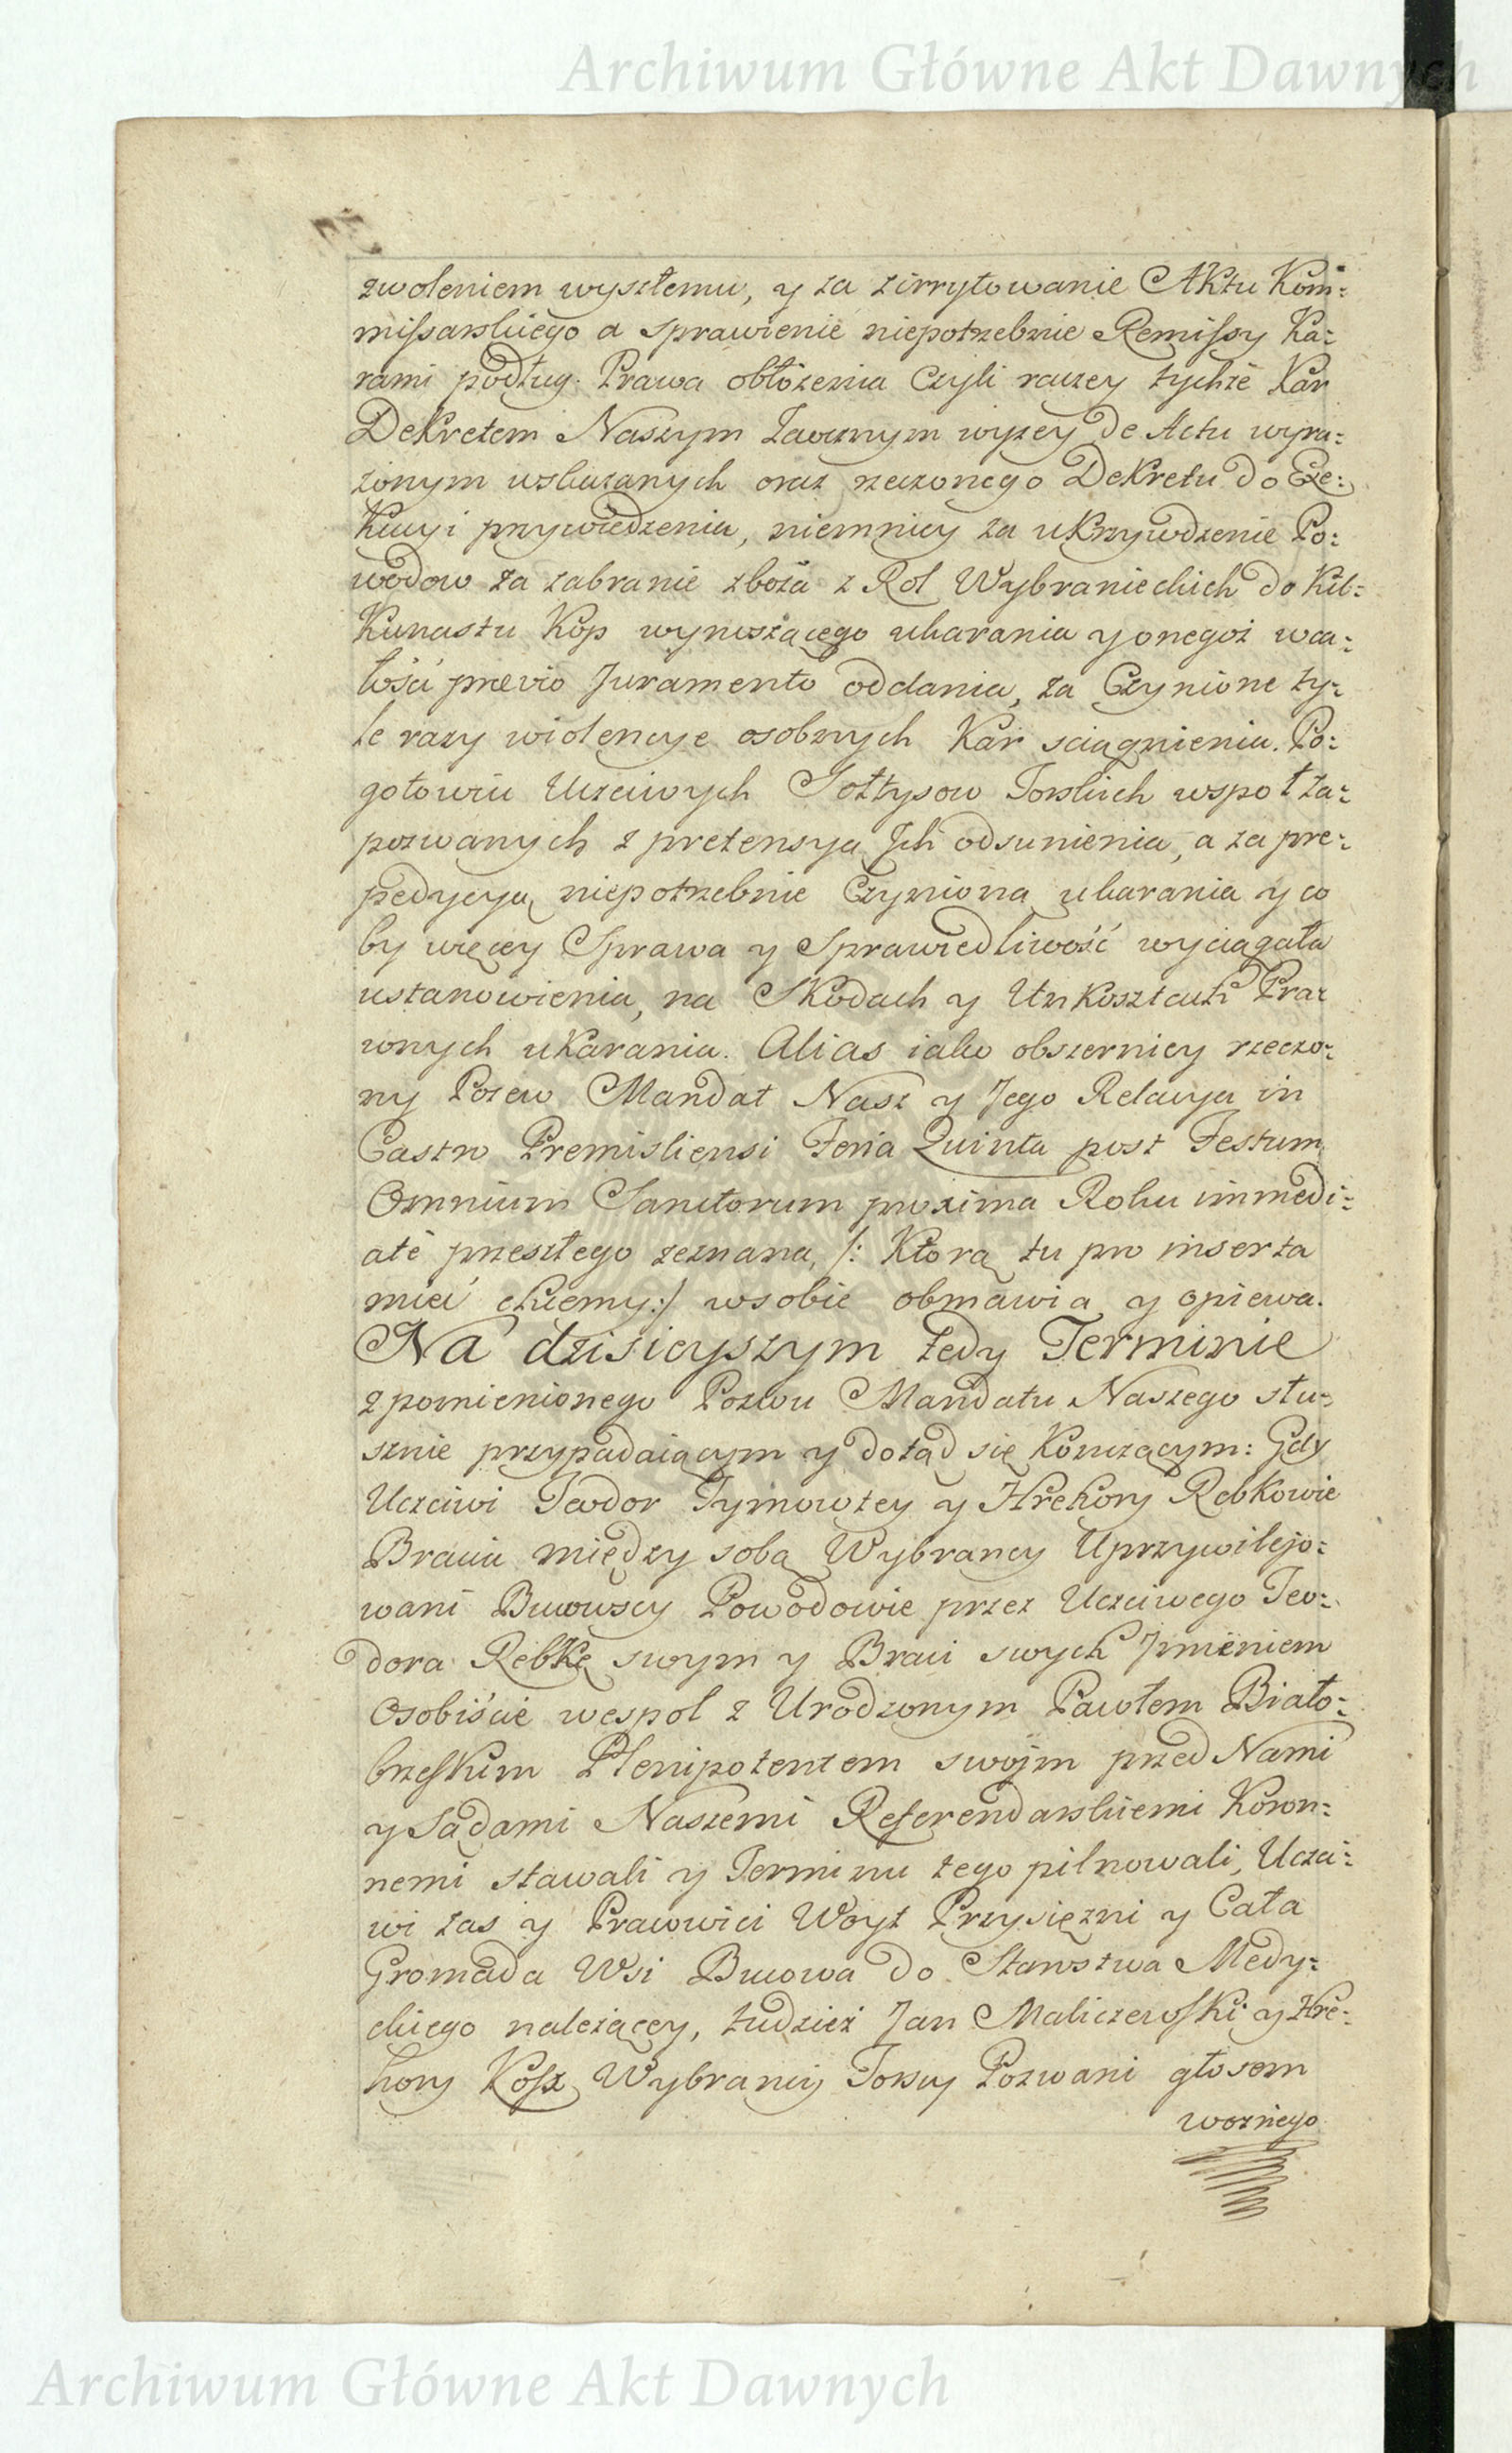 Archiwum Główne Akt Dawnych
zwoleniem wyszłemu, y za zirrytowanie Aktu Kom=
missarskiego a sprawienie niepotrzebnie Remissy Ka=
rami podług Prawa obłożenia Czyli raczey tychże Kar
Dekretem Naszym Zaocznym wyżey de Actu wyra=
żonym wskazanych oraz rzeczonego Dekretu do Exe=
kucyi przywiedzenia, niemniey za ukrzywdzenie Po=
wodow za zabranie zboża z Rol Wybranieckich do Kil=
kunastu Kop wynoszącego ukarania y onegoż wca=
łości prævio Juramento oddania, za Czynione ty=
le razy wiolencye osobnych Kar sciągnienia. Po=
gotowiu Uczciwych Sołtysow Torskich wspoł za=
pozwanych z pretensyą Ich odsunienia, a za pre=
pedycyą niepotrzebnie Czynioną ukarania y co
by więcey Sprawa y Sprawiedliwość wyciągała
ustanowienia, na Skodach y Unkosztach Pra=
wnych ukarania. Alias iako obszerniey rzeczo=
ny Pozew Mandat Nasz y Jego Relacya in
Castro Premisliensi Feria Quinta post Festum
Omnium Sanctorum proxima Roku immedi=
atè przeszłego zeznana, /: Ktorą tu pro inserta
mieć chcemy :/ wsobie obmawia y opiewa.
Na dzisieyszym tedy Terminie
z pomienionego Pozwu Mandatu Naszego słu=
sznie przypadaiącym y dotąd się Kończącym: Gdy
Uczciwi Teodor Tymowtey y Hrehory Rebkowie
Bracia między sobą Wybrańcy Uprzywilejo=
wani Bucowscy Powodowie przez Uczciwego Teo=
dora Rebkę swym y Braci swych Jmieniem
Osobiście wespol z Urodzonym Pawłem Biało=
brzeskim Plenipotentem swoim przed Nami
y Sądami Naszemi Referendarskiemi Koron=
nemi stawali y Terminu tego pilnowali, Uczci=
wi zas y Pracowici Woyt Przysiężni y Cała
Gromada Wsi Bucowa do Starostwa Medy=
ckiego należącey, tudzież Jan Maliczewski y Hre=
hory Kossz Wybrańcy Torscy Pozwani głosem
woznego
Archiwum Główne Akt Dawnych